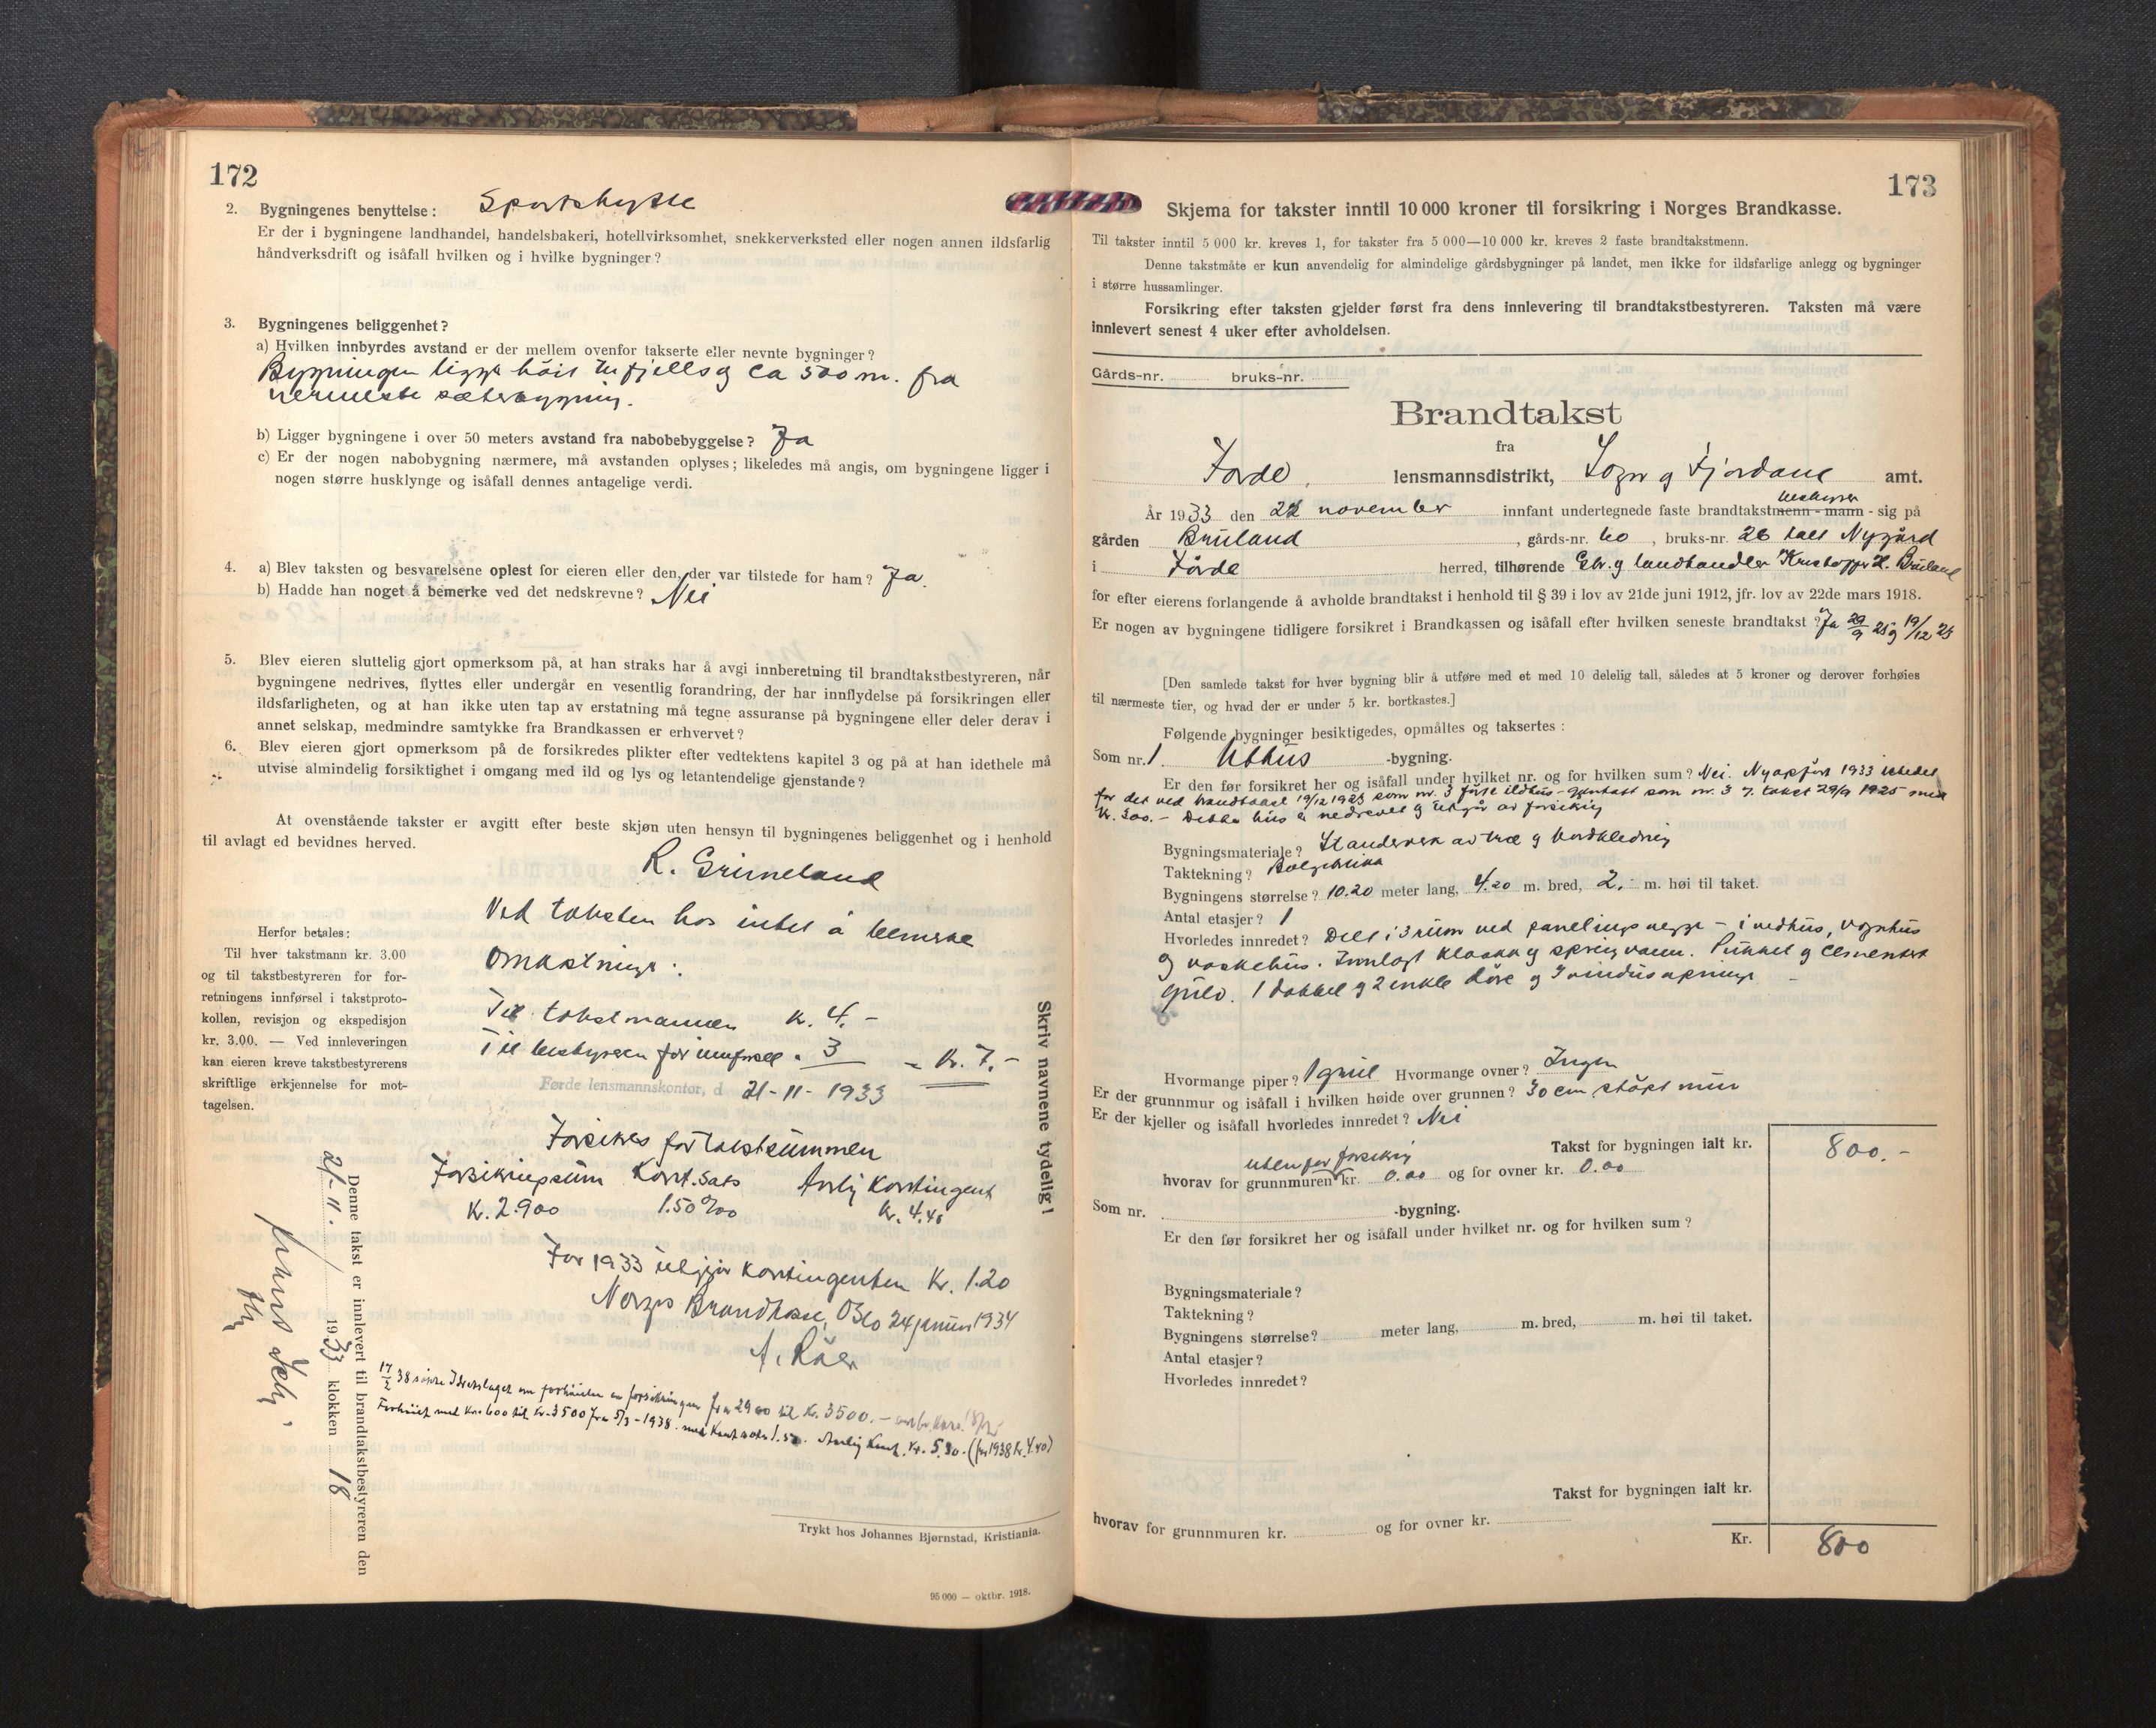 172
2. Bygningenes benyttelse: Sportshytte
Er der i bygningene landhandel, handelsbakeri, hotellvirksomhet, snekkerverksted eller nogen annen ildsfarlig
håndverksdrift og isåfall hvilken og i hvilke bygninger?
3. Bygningenes beliggenhet?
a) Hvilken innbyrdes avstand er der mellem ovenfor takserte eller nevnte bygninger?
Bygningen ligger høit til fjells og ca 500 m. fra
nermeste sæterbygning.
b) Ligger bygningene i over 50 meters avstand fra nabobebyggelse? Ja
c) Er der nogen nabobygning nærmere, må avstanden oplyses; likeledes må angis, om bygningene ligger i
nogen større husklynge og isåfall dennes antagelige verdi.
4. a) Blev taksten og besvarelsene oplest for eieren eller den, der var tilstede for ham? Ja.
b) Hadde han noget å bemerke ved det nedskrevne? Nei
5. Blev eieren sluttelig gjort opmerksom på, at han straks har å avgi innberetning til brandtakstbestyreren, når
bygningene nedrives, flyttes eller undergår en vesentlig forandring, der har innflydelse på forsikringen eller
ildsfarligheten, og at han ikke uten tap av erstatning må tegne assuranse på bygningene eller deler derav i
annet selskap, medmindre samtykke fra Brandkassen er erhvervet?
6. Blev eieren gjort opmerksom på de forsikredes plikter efter vedtektens kapitel 3 og på at han idethele må
utvise almindelig forsiktighet i omgang med ild og lys og letantendelige gjenstande?
At ovenstående takster er avgitt efter beste skjøn uten hensyn til bygningenes beliggenhet og i henhold
til avlagt ed bevidnes herved.
R. Grimeland
Ved taksten har intet å bemerke
Omkostninger:
Til takstmannen kr. 4.-
Til bestyreren for innførsel " 3 = kr. 7.-
Førde lensmannskontor, d 21-11-1933
Herfor betales:
Til hver takstmann kr. 3.00
og til takstbestyreren for for-
retningens innførsel i takstproto-
kollen, revisjon og ekspedisjon
kr. 3.00. — Ved innleveringen
kan eieren kreve takstbestyrerens
skriftlige erkjennelse for mot-
tagelsen.
Skriv navnene tydelig!
Forsikres for takstsummen
Forsikringssum Kont.sats Årlig Kontingent
Kr. 2.900 1.50 ‰ Kr. 4.40
For 1933 utgjør kontingenten Kr. 1.20
Norges Brandkasse, Oslo 24 januar 1934
Denne takst er innlevert til brandtakstbestyreren den
21-11. 1933 klokken 18
17/2 38 søkte Idrettslaget om forhøielse av forsikringen fra 2900 til Kr. 3500.-
Forhøiet med Kr. 600 til Kr. 3500 fra 5/3-1938. med Kont.sats 1.50. Aarlig Kont. Kr. 5.30. (for 1938 kr. 4.40)
Trykt hos Johannes Bjørnstad, Kristiania.
95 000 — oktbr. 1918.
173
Skjema for takster inntil 10 000 kroner til forsikring i Norges Brandkasse.
Til takster inntil 5 000 kr. kreves 1, for takster fra 5 000—10 000 kr. kreves 2 faste brandtakstmenn.
Denne takstmåte er kun anvendelig for almindelige gårdsbygninger på landet, men ikke for ildsfarlige anlegg og bygninger
i større hussamlinger.
Forsikring efter taksten gjelder først fra dens innlevering til brandtakstbestyreren. Taksten må være
innlevert senest 4 uker efter avholdelsen.
Gårds-nr. bruks-nr.
Brandtakst
fra
Førde lensmannsdistrikt, Sogn og Fjordane amt.
År 1933 den 22 november innfant undertegnede faste brandtakstmenn - mann - bestyrer sig på
gården Bruland, gårds-nr. 60, bruks-nr. 26 kalt Nygård
i Førde herred, tilhørende Gbr. og landhandler Kristoffer H. Bruland
for efter eierens forlangende å avholde brandtakst i henhold til § 39 i lov av 21de juni 1912, jfr. lov av 22de mars 1918.
Er nogen av bygningene tidligere forsikret i Brandkassen og isåfall efter hvilken seneste brandtakst? Ja 29/9 25 og 19/12 23
[Den samlede takst for hver bygning blir å utføre med et med 10 delelig tall, således at 5 kroner og derover forhøies
til nærmeste tier, og hvad der er under 5 kr. bortkastes.]
Følgende bygninger besiktigedes, opmåltes og taksertes:
Som nr. 1 Uthus -bygning.
Er den før forsikret her og isåfall under hvilket nr. og for hvilken sum? Nei. Nyopført 1933 istedet
for det ved brandtakst 19/12 1923 som nr. 3 førte ildhus - gjentatt som nr. 3 i takst 29/9 1925 med
kr. 300.- Dette hus er nedrevet og utgår av forsikring
Bygningsmateriale? Standverk av træ og bordkledning
Taktekning? Bølgeblikk
Bygningens størrelse? 10.20 meter lang, 4.20 m. bred, 2.- m. høi til taket.
Antal etasjer? 1
Hvorledes innredet? Delt i 3 rum ved panelings vegger - i vedhus, vognhus
og vaskehus. Innlagt kloakk og springvann. Pukket og cementert
gulv. 1 dobbel og 2 enkle døre og 3 vindusåpninger -
Hvormange piper? 1 Hvormange ovner? Ingen
Er der grunnmur og isåfall i hvilken høide over grunnen? 30 cm støpt mur
Er der kjeller og isåfall hvorledes innredet? Nei
Takst for bygningen ialt kr. 800.-
utenfor forsikring
hvorav for grunnmuren kr. 0.00 og for ovner kr. 0.00
Som nr. -bygning.
Er den før forsikret her og isåfall under hvilket nr. og for hvilken sum?
Bygningsmateriale?
Taktekning?
Bygningens størrelse? meter lang, m. bred, m. høi til taket.
Antal etasjer?
Hvorledes innredet?
Takst for bygningen ialt kr.
hvorav for grunnmuren kr. og for ovner kr.
Kr. 800